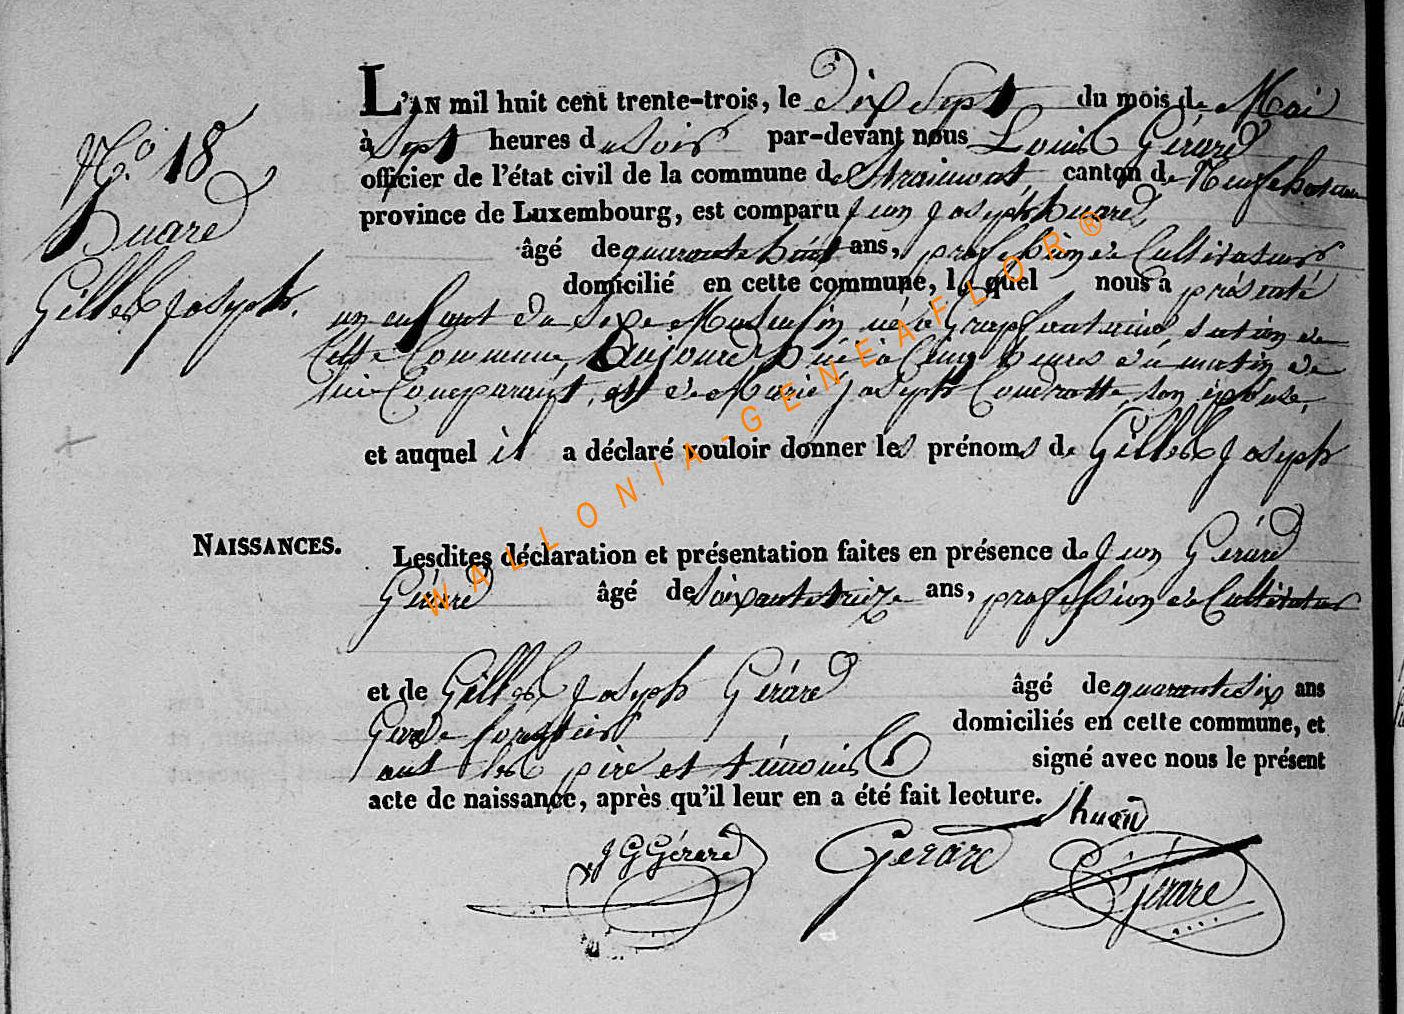 N.o 18
Huard
Gilles Joseph.
L'AN mil huit cent trente-trois, le Dix Sept du mois de Mai
à Sept heures du soir par-devant nous Louis Gérard
officier de l'état civil de la commune de Straimont, canton de Neufchateau
province de Luxembourg, est comparu Jean Joseph Huard,
âgé de quarante huit ans, profession de Cultivateur
domicilié en cette commune, lequel nous a présenté
un enfant du Sexe Masculin né à Grapfontaine, section de
Cette Commune, Aujourd'hui à Cinq heures du matin de
lui Comparant, et de Marie Joseph Coudrotte, son épouse,
et auquel il a déclaré vouloir donner les prénoms de Gilles Joseph
NAISSANCES.
Lesdites déclaration et présentation faites en présence de Jean Gérard
Gérard âgé de Soixante treize ans, profession de Cultivateur
et de Gilles Joseph Gérard âgé de quarante six ans
Garde Forestier domiciliés en cette commune, et
ont les père et témoins signé avec nous le présent
acte de naissance, après qu'il leur en a été fait lecture.
J huard
J G Gérard Gerard L Gérard
WALLONIA-GENEAFLOR®